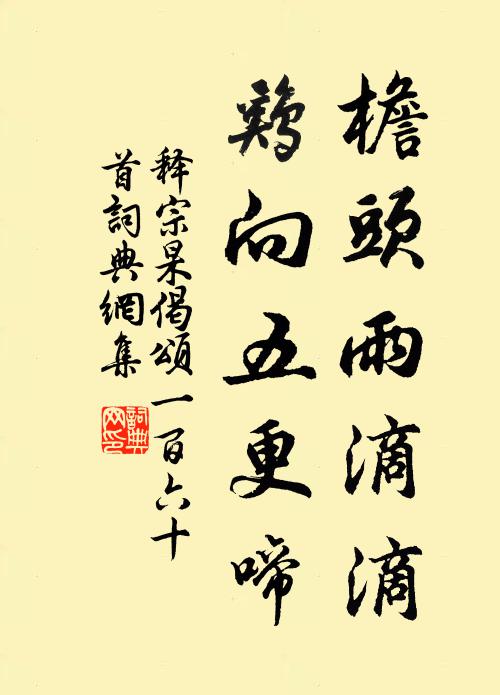 檐頭雨滴滴
鷄向五更啼
释宗杲偈頌一百六十
首詞典網集
詞典
网印